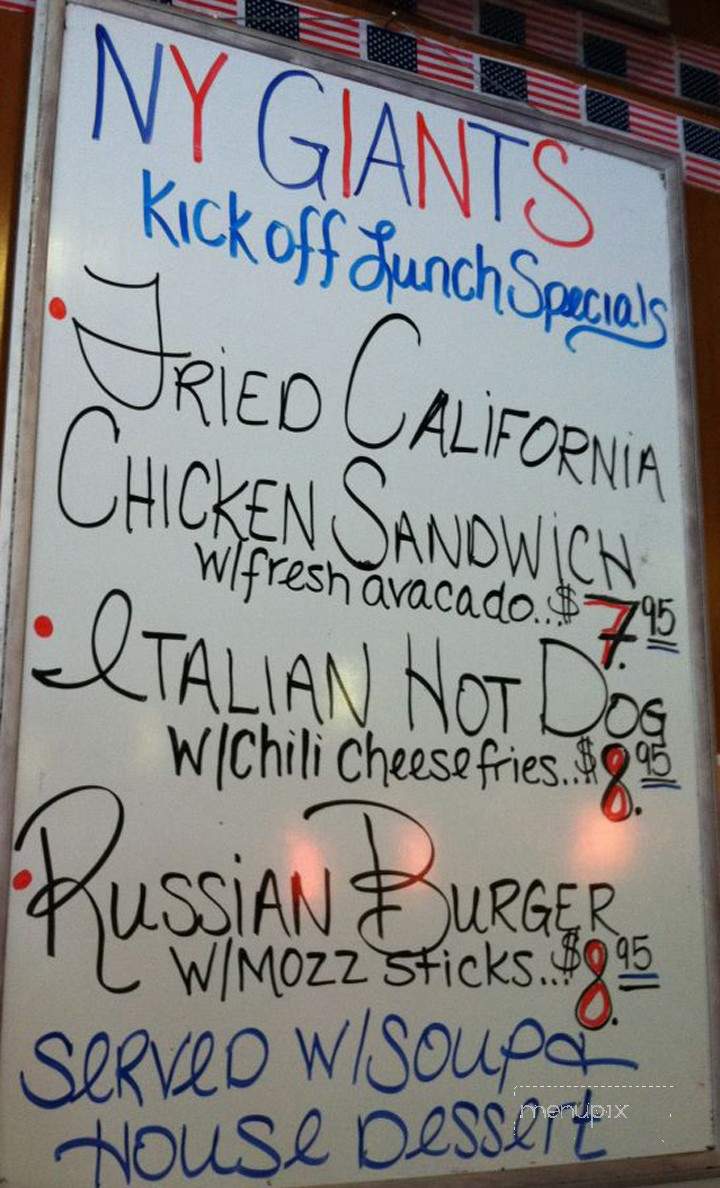 NY GIANTS
Kick off Lunch Specials
• FRiED CALiFORNiA
CHICKEN SANDWiCH
w/fresh avacado...$7.95
• ITALIAN HOT DOG
W/Chili cheese fries...$8.95
• RUSSiAN BURGER
W/Mozz sticks...$8.95
SERVED W/SOUP &
HOUSE DESSERT
menupix